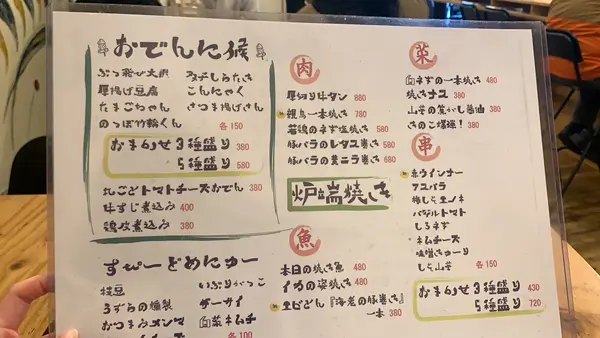 おでんに候
ぶっ飛び大根
厚揚げ豆腐
たまごちゃん
のっぽ竹輪くん
こんにゃく
さつま揚げさん
各150
おまかせ3種盛り 380
5種盛り 580
丸ごとトマトチーズおでん 380
牛すじ煮込み 400
鶏皮煮込み 380
すぴーどめにゅー
枝豆
うずらの燻製
おつまみメンマ
いぶりがっこ
ザーサイ
白菜キムチ
肉
厚切り牛タン 880
親鳥一本焼き 780
若鶏のネギ塩焼き 580
豚バラのレタス巻き 380
豚バラの黄ニラ巻き 380
炉端焼き
魚
本日の焼き魚 480
イカの姿焼き 480
生ビどん『海老の豚巻き』
一本 380
菜
白ネギの一本焼き 480
焼きナス 380
山芋の焦がし醤油 480
きのこ爆爆! 380
串
赤ウインナー
アスパラ
梅しそエノキ
バジルトマト
しろネギ
ネムチーズ
味噌きゅうり
しそ山芋
各150
おまかせ3種盛り 430
5種盛り 720